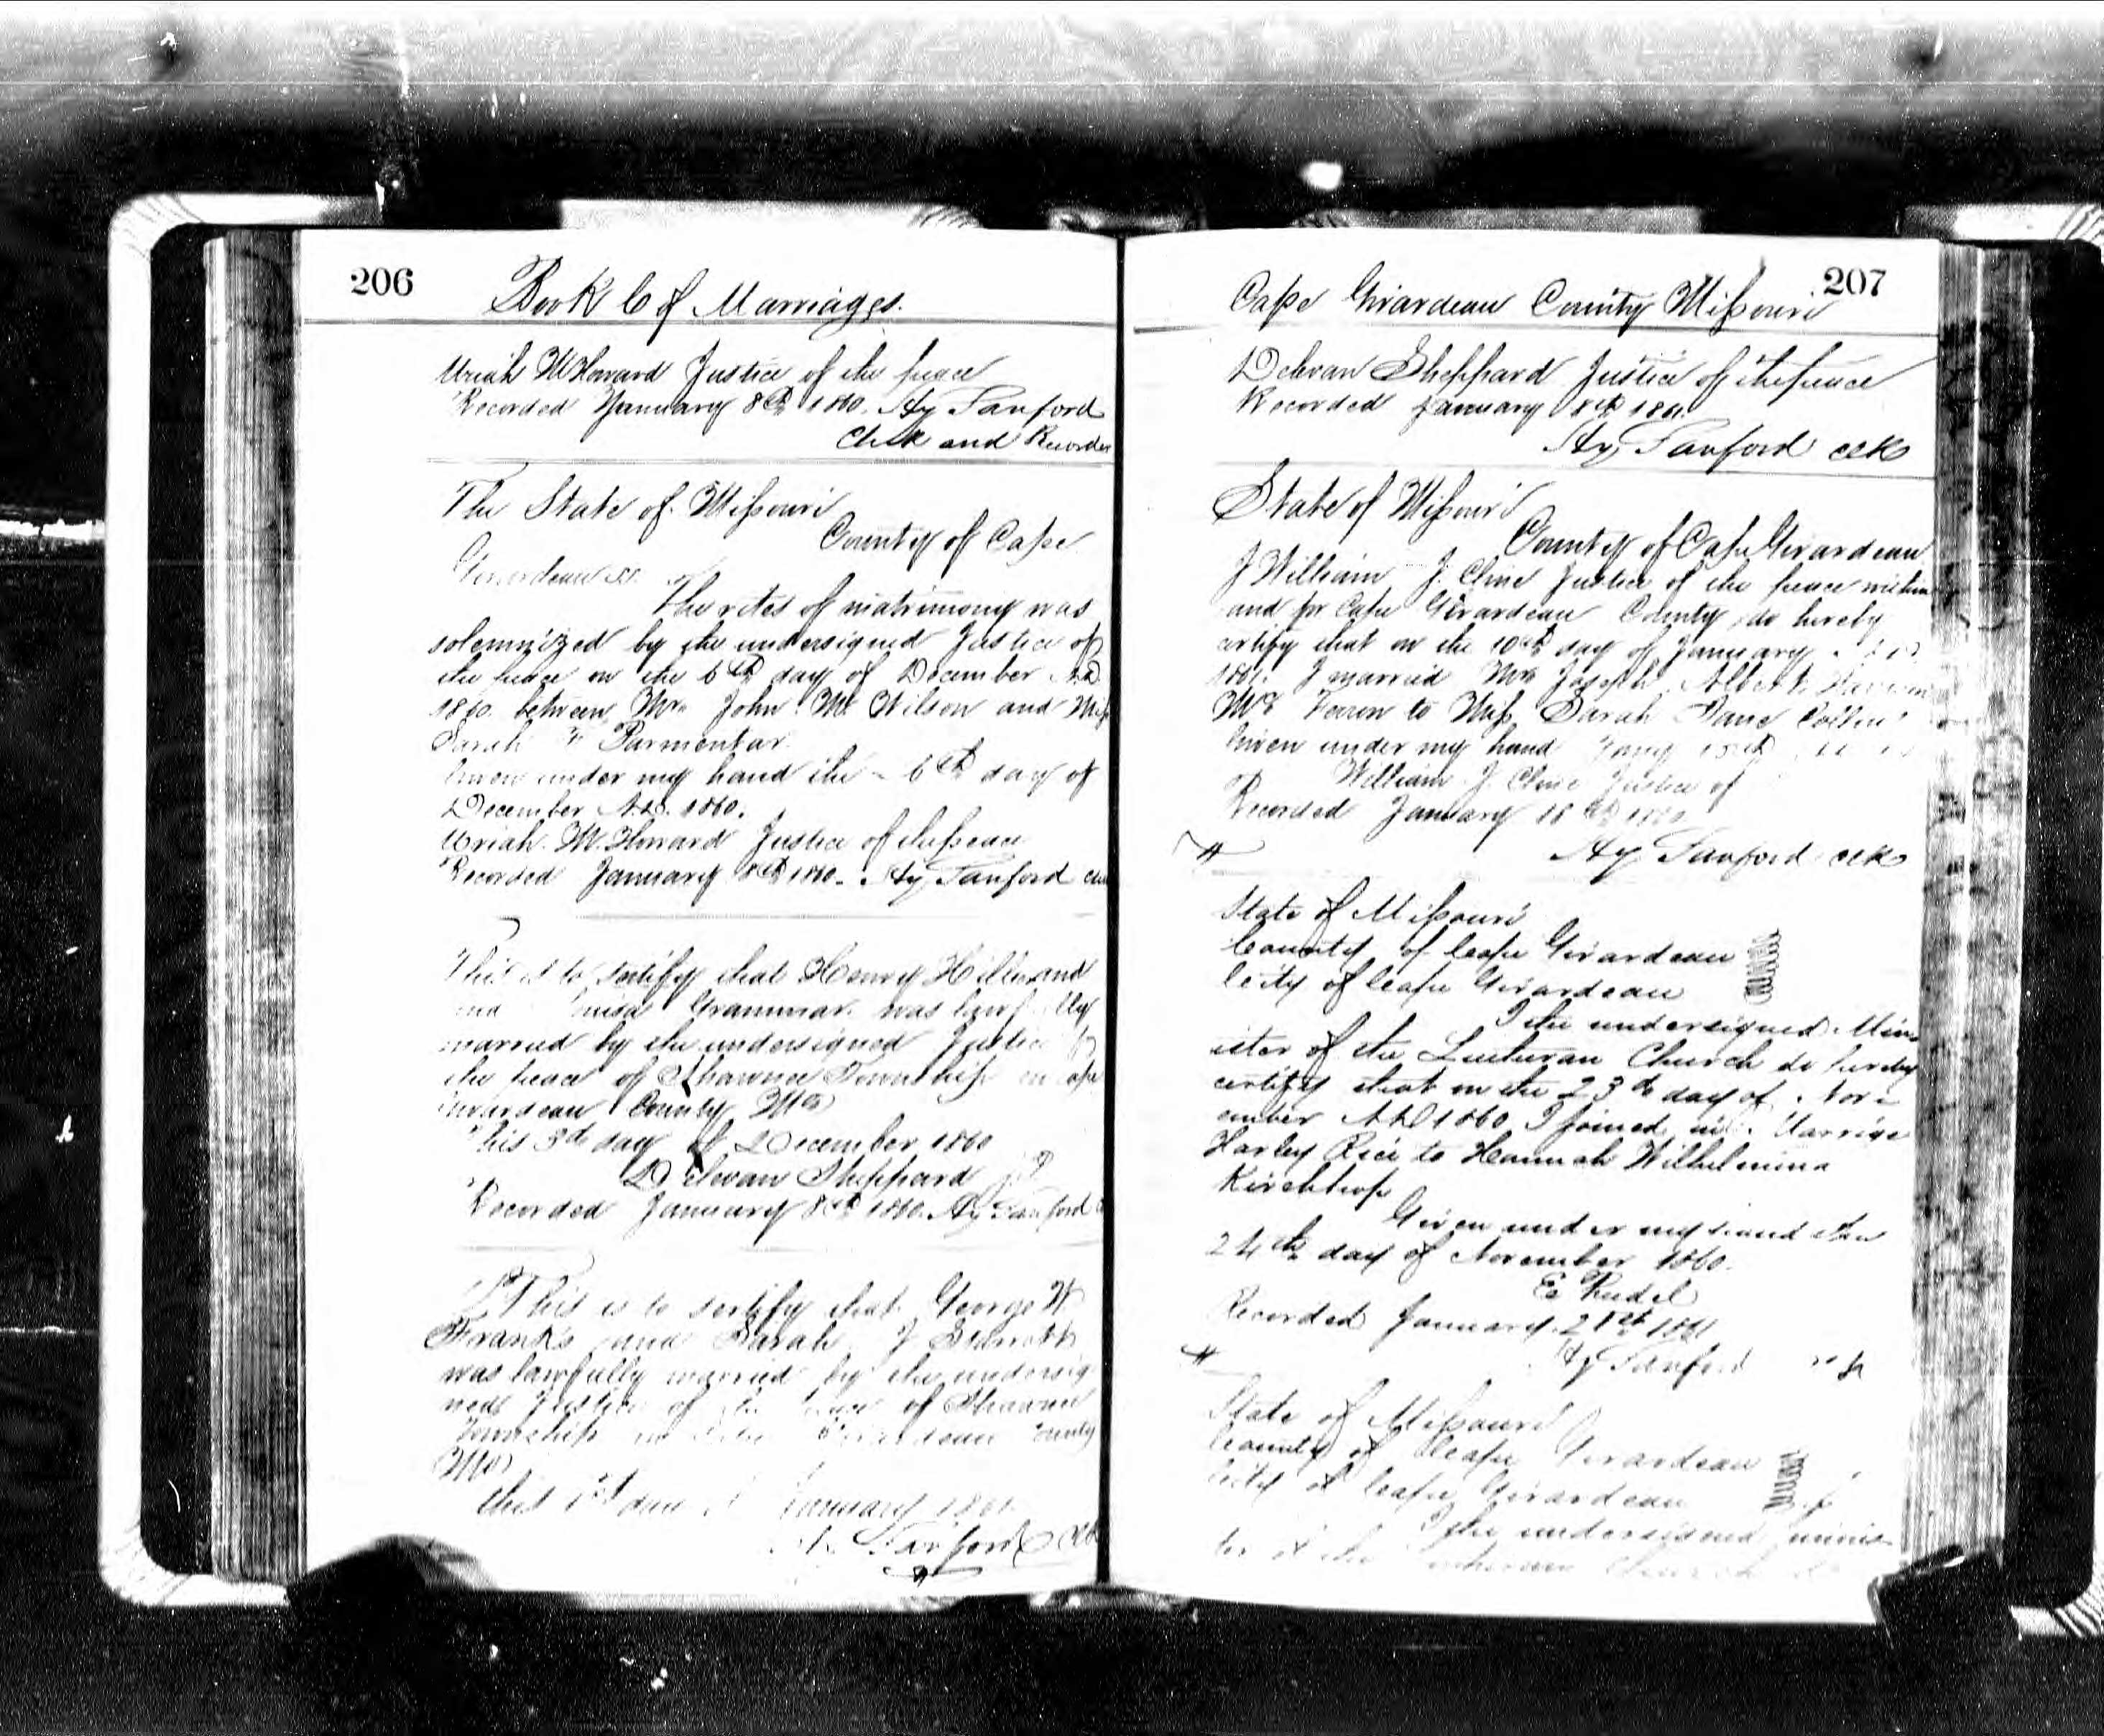 206
Book C of Marriages.
Uriah M Howard Justice of the peace
Recorded January 8th 1860. Hy Sanford
Clerk and Recorder
The State of Missouri
County of Cape
Girardeau ss.
The rites of matrimony was
solemnized by the undersigned Justice of
the peace on the 6th day of December A.D.
1860. between Mr. John M. Wilson and Miss
Sarah Parmentar
Given under my hand the 6th day of
December A.D. 1860.
Uriah M. Howard Justice of the peace
Recorded January 8th 1860. Hy Sanford
This is to certify that Henry
Grammar was lawfully
married by the undersigned Justice of
the peace of Shawnee Township in Cape
Girardeau County Mo
This 3d day of December 1860
Delvan Sheppard J P
Recorded January 8th 1860. Hy Sanford
This is to certify that George W
Franks and Sarah J
was lawfully married by the undersig
ned Justice of the peace of Shawnee
Township in Cape Girardeau County
Mo
this 1st day of January 1861
Hy Sanford Clk
207
Cape Girardeau County Missouri
Delvan Sheppard Justice of the peace
Recorded January 8th 1861.
Hy Sanford clk
State of Missouri
County of Cape Girardeau
I William J. Cline Justice of the peace within
and for Cape Girardeau County do hereby
certify that on the 10th day of January
1861. I married Mr Joseph Albert
to Miss Sarah Jane
Given under my hand
William J. Cline Justice of
Recorded January 18th
Hy Sanford clk
State of Missouri
County of Cape Girardeau
City of Cape Girardeau
I the undersigned Min
ister of the Lutheran Church do hereby
certify that on the 23d day of Nov
ember A D 1860 I joined in Marriage
Harley Rice to Hannah Wilhelmina
Given under my hand the
24th day of November 1860.
E Riedel
Recorded January 21st 1861
Hy Sanford
State of Missouri
County of Cape Girardeau
City of Cape Girardeau
I the undersigned minis
ter of the Lutheran Church do